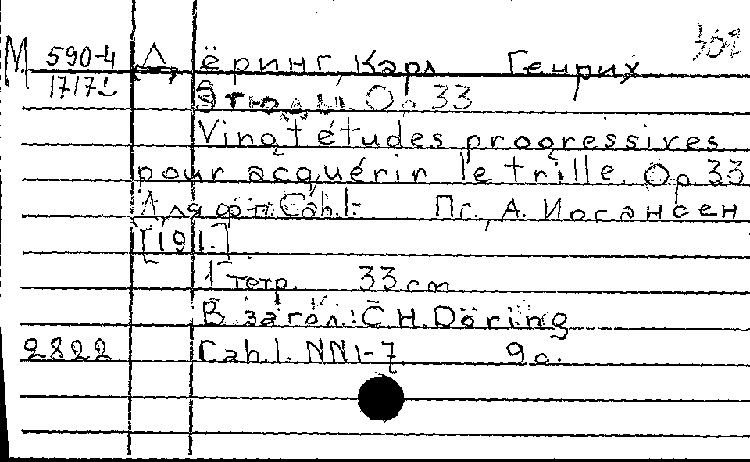 М 590-4 Дёринг, Карл Генрих
1717L
Этюды. Ор 33
Vingt études progressives
pour acquérir le trille. Op 33
Для ф-п. Cah.1. Пг., А. Иогансен,
[191.]
1 тетр. 33 cm
В загол.: C.H. Döring
2822 Cah.1. NN1-7 90.